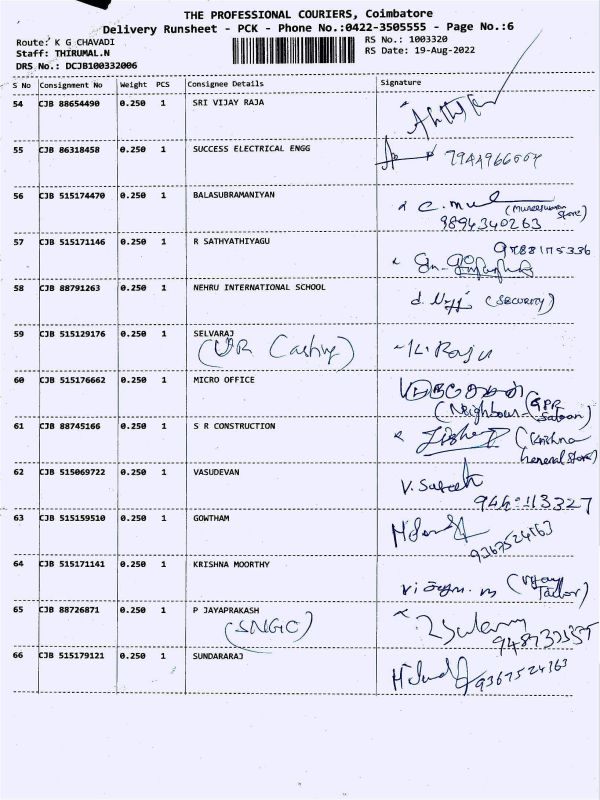 THE PROFESSIONAL COURIERS, Coimbatore
Delivery Runsheet - PCK - Phone No.:0422-3505555 - Page No.:6
Route: K G CHAVADI
RS No.: 1003320
Staff: THIRUMAL.N
RS Date: 19-Aug-2022
DRS No.: DCJB100332006
S No Consignment No Weight PCS Consignee Details Signature
54 CJB 88654490 0.250 1 SRI VIJAY RAJA
55 CJB 86318458 0.250 1 SUCCESS ELECTRICAL ENGG
56 CJB 515174470 0.250 1 BALASUBRAMANIYAN
9894340263
57 CJB 515171146 0.250 1 R SATHYATHIYAGU
58 CJB 88791263 0.250 1 NEHRU INTERNATIONAL SCHOOL
(SECURITY)
59 CJB 515129176 0.250 1 SELVARAJ
(UR Casting) K. Raju
60 CJB 515176662 0.250 1 MICRO OFFICE
(Neighbour - GPR Saloon)
61 CJB 88745166 0.250 1 S R CONSTRUCTION
(Krishna
General Store)
62 CJB 515069722 0.250 1 VASUDEVAN
63 CJB 515159510 0.250 1 GOWTHAM
9367524163
64 CJB 515171141 0.250 1 KRISHNA MOORTHY
(Vijay
Tailor)
65 CJB 88726871 0.250 1 P JAYAPRAKASH
(SNGC)
66 CJB 515179121 0.250 1 SUNDARARAJ
9367524163